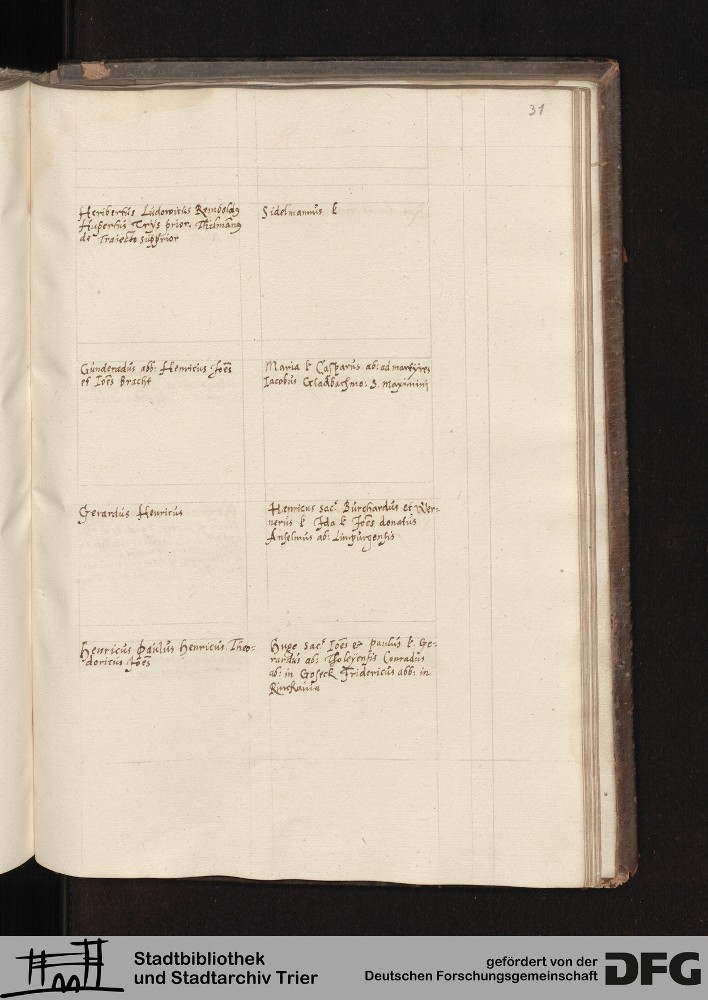 31
Heribertus Ludowicus Remboldus
Hupertus Trijs prior. Thilmanus
de Traiecto supprior
Sidelmannus k
Gunderadus abb: Henricus Joes
et Joes Bracht
Maria k Casparus ab: ad martÿres
Iacobus Gladbach mo: S. Maximini
Gerardus Henricus
Henricus sac: Burchardus et Wer-
nerus k Ida k Joes donatus
Anselmus ab: Limpurgensis
Henricus Paulus Henricus Theo-
doricus Joes
Hugo sac: Joes et paulus k. Ge-
rardus ab: Tholeÿensis Conradus
ab: in Goseck Fridericus abb: in
Stadtbibliothek
und Stadtarchiv Trier
gefördert von der
Deutschen Forschungsgemeinschaft
DFG